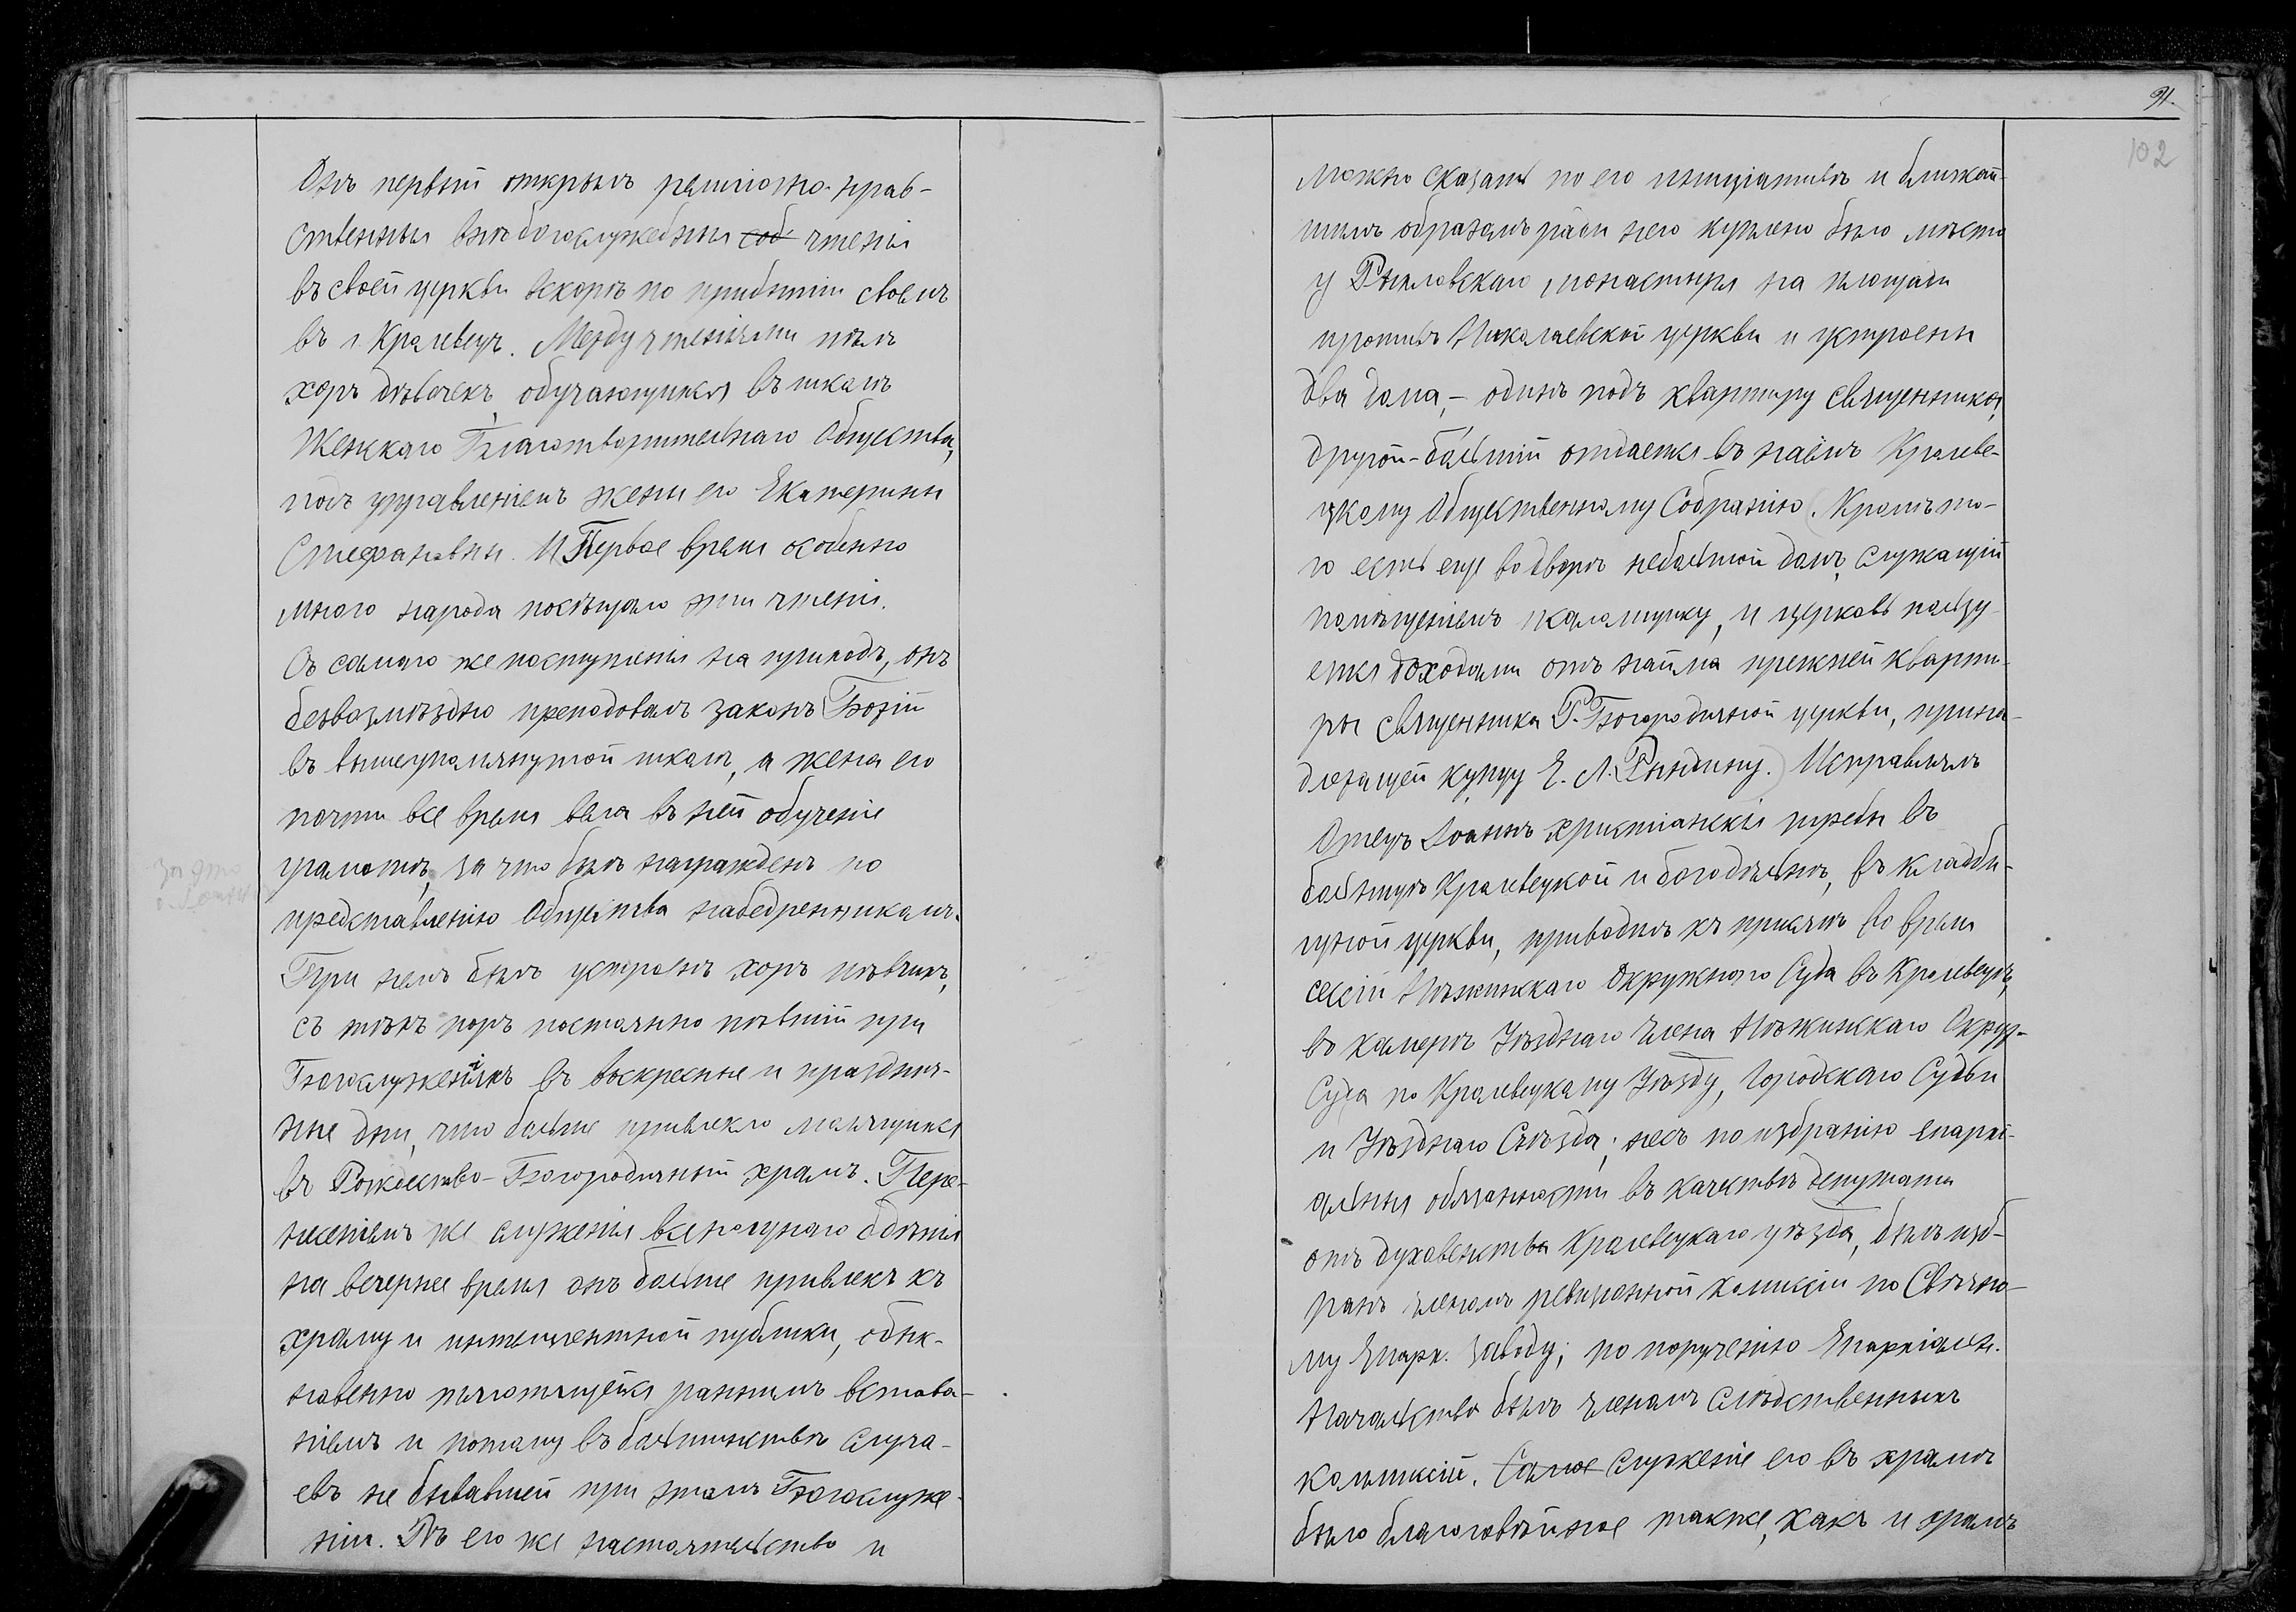 Онъ первый открылъ религіозно-нрав-
ственныя внѣбогослужебныя соб чтенія
въ своей церкви вскорѣ по прибытіи своемъ
въ г. Кролевецъ. Между чтеніями пѣлъ
хоръ дѣвочекъ, обучающихся въ школѣ
Женскаго Благотворительнаго Общества,
подъ управленіемъ жены его Екатерины
Стефановны. И Первое время особенно
много народа посѣщало эти чтенія.
Съ самаго же поступленія на приходъ, онъ
безвозмѣздно преподовалъ законъ Божій
въ вышеупомянутой школѣ, а жена его
почти все время вела въ ней обученіе
грамотѣ, за что былъ награжденъ по
представленію Общества набедренникомъ.
При немъ былъ устроенъ хоръ пѣвчихъ,
съ тѣхъ поръ постоянно пѣвшій при
Богослуженіяхъ въ воскресные и празднич-
ные дни, что больше привлекло молящихся
въ Рождество-Богородичный храмъ. Пере-
несеніемъ же служенія всенощнаго бдѣнія
на вечернее время онъ больше привлекъ къ
храму и интелигентной публики, обык-
новенно тяготящейся раннимъ встава-
ніемъ и потому въ большинствѣ случа-
евъ не бывавшей при этомъ Богослуже-
ніи. Въ его же настоятельство и
за это
о. Іоаннъ
91.
102
можно сказать по его инициативѣ и ближай-
шимъ образомъ ради него куплено было мѣсто
у Рыхловскаго монастыря на площади
противъ Николаевской церкви и устроены
два дома, – одинъ подъ квартиру священника,
другой – большій отдается въ наёмъ Кролеве-
цкому Общественному Собранію. (Кромѣ то-
го есть еще во дворѣ небольшой домъ, служащій
помѣщеніемъ псаломщику, и церковь пользу-
ется доходами отъ найма прежней кварти-
ры священника Р. Богородичной церкви, прина-
длежащей купцу Е. Л. Рындину.) Исправлялъ
Отецъ Іоаннъ христіанскія требы въ
больницѣ Кролевецкой и богодѣльнѣ, въ кладби-
щной церкви, приводилъ къ присягѣ во время
сессіи Нѣжинскаго Окружнаго Суда въ Кролевцѣ,
въ камерѣ Уѣзднаго Члена Нѣжинскаго Окруж-
Суда по Кролевецкому Уѣзду, Городскаго Судьи
и Уѣзднаго Съѣзда; несъ по избранію епархі-
альныя обязанности въ качествѣ депутата
отъ духовенства Кролевецкаго уѣзда, былъ изб-
ранъ членомъ ревизіонной комиссіи по Свѣчно-
му Епарх. заводу; по порученію Епархіальн.
Начальства былъ членомъ слѣдственныхъ
комиссій. Самое Служеніе его въ храмѣ
было благоговѣйное также, какъ и храмъ